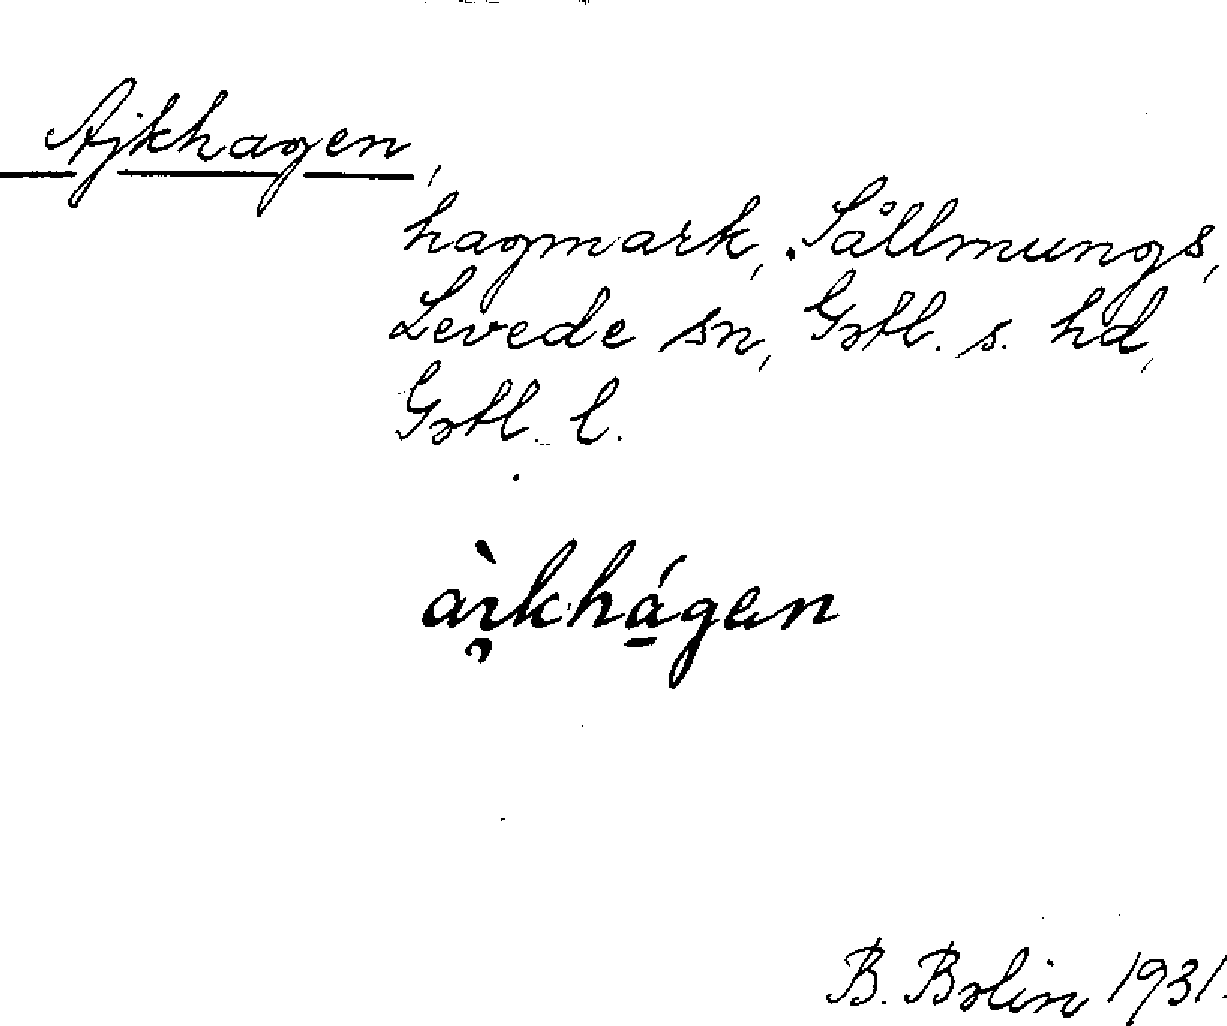 Ajkhagen,
hagmark, Sållmungs,
Levede sn, Gotl. s. hd,
Gotl. l.
B. Bolin 1931.